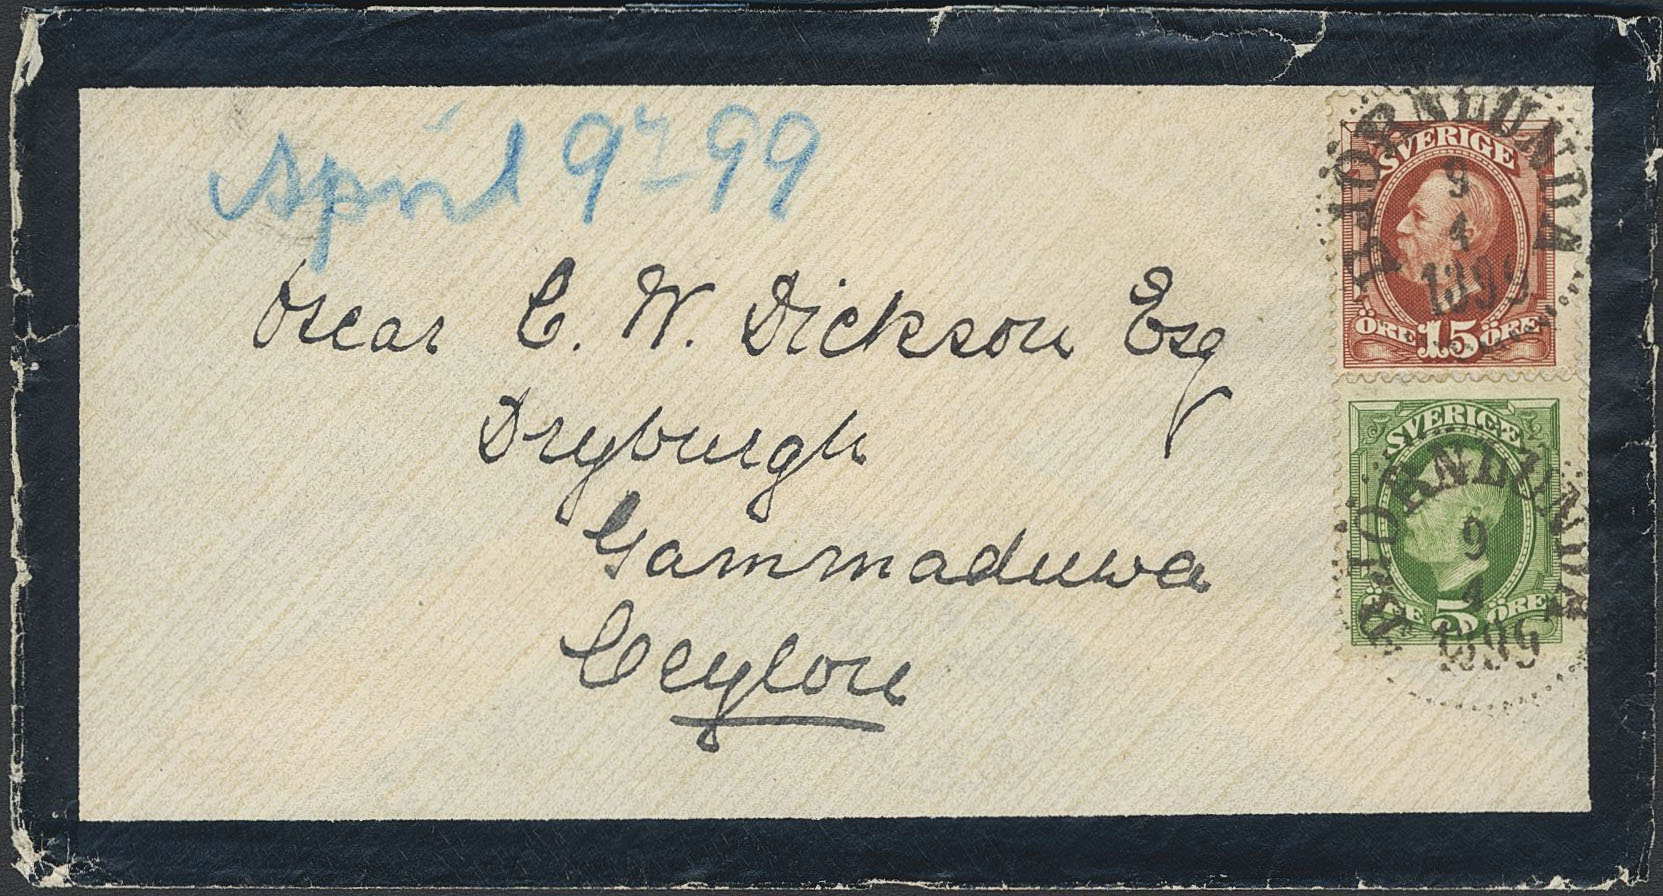 April 9th 99
Oscar C. W. Dickson Esq
Dryburgh
Gammaduwa
Ceylon
SVERIGE
ÖRE 15 ÖRE
BJÖRNLUNDA
9
4
1899
SVERIGE
ÖRE 5 ÖRE
BJÖRNLUNDA
9
4
1899